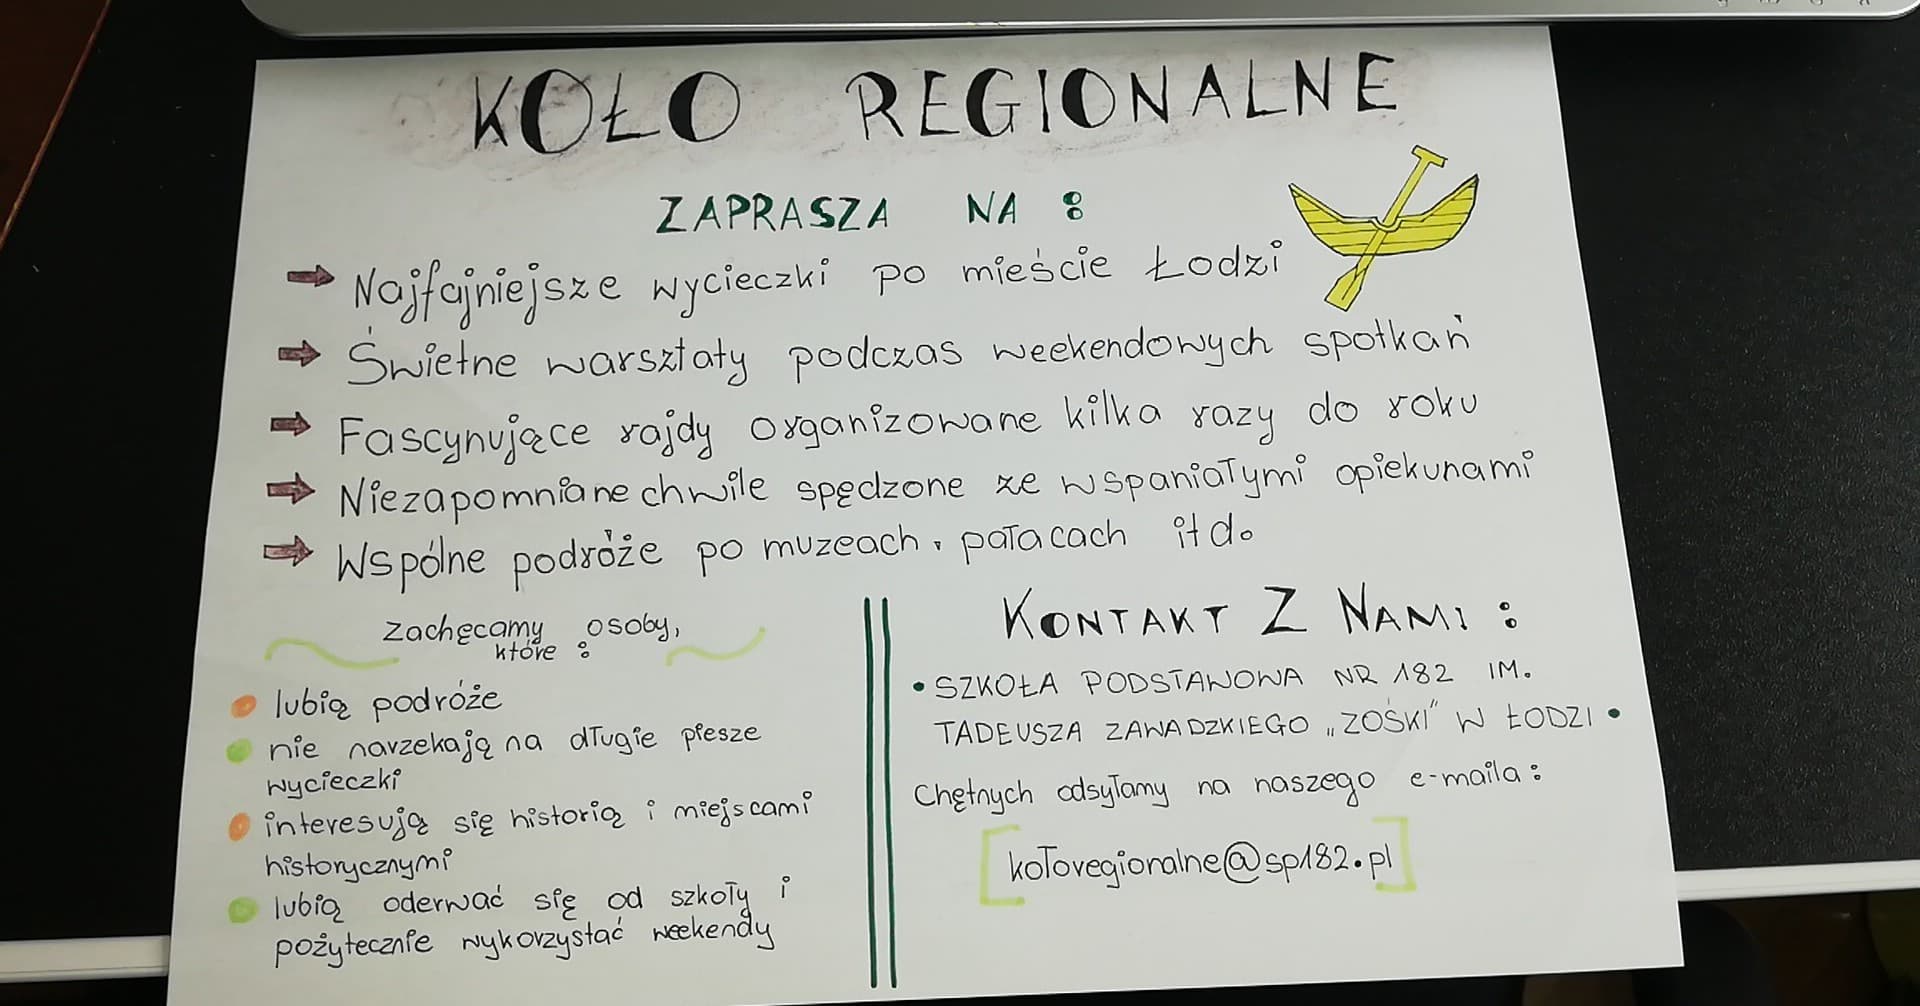 KOŁO REGIONALNE
ZAPRASZA NA :
Najfajniejsze wycieczki po mieście Łodzi
Świetne warsztaty podczas weekendowych spotkań
Fascynujące rajdy organizowane kilka razy do roku
Niezapomniane chwile spędzone ze wspaniałymi opiekunami
Wspólne podróże po muzeach, pałacach itd.
Zachęcamy osoby,
które :
lubią podróże
nie narzekają na długie piesze
wycieczki
interesują się historią i miejscami
historycznymi
lubią oderwać się od szkoły i
pożytecznie wykorzystać weekendy
KONTAKT Z NAMI :
• SZKOŁA PODSTAWOWA NR 182 IM.
TADEUSZA ZAWADZKIEGO „ZOŚKI" W ŁODZI •
Chętnych odsyłamy na naszego e-maila :
[kołoregionalne@sp182.pl]